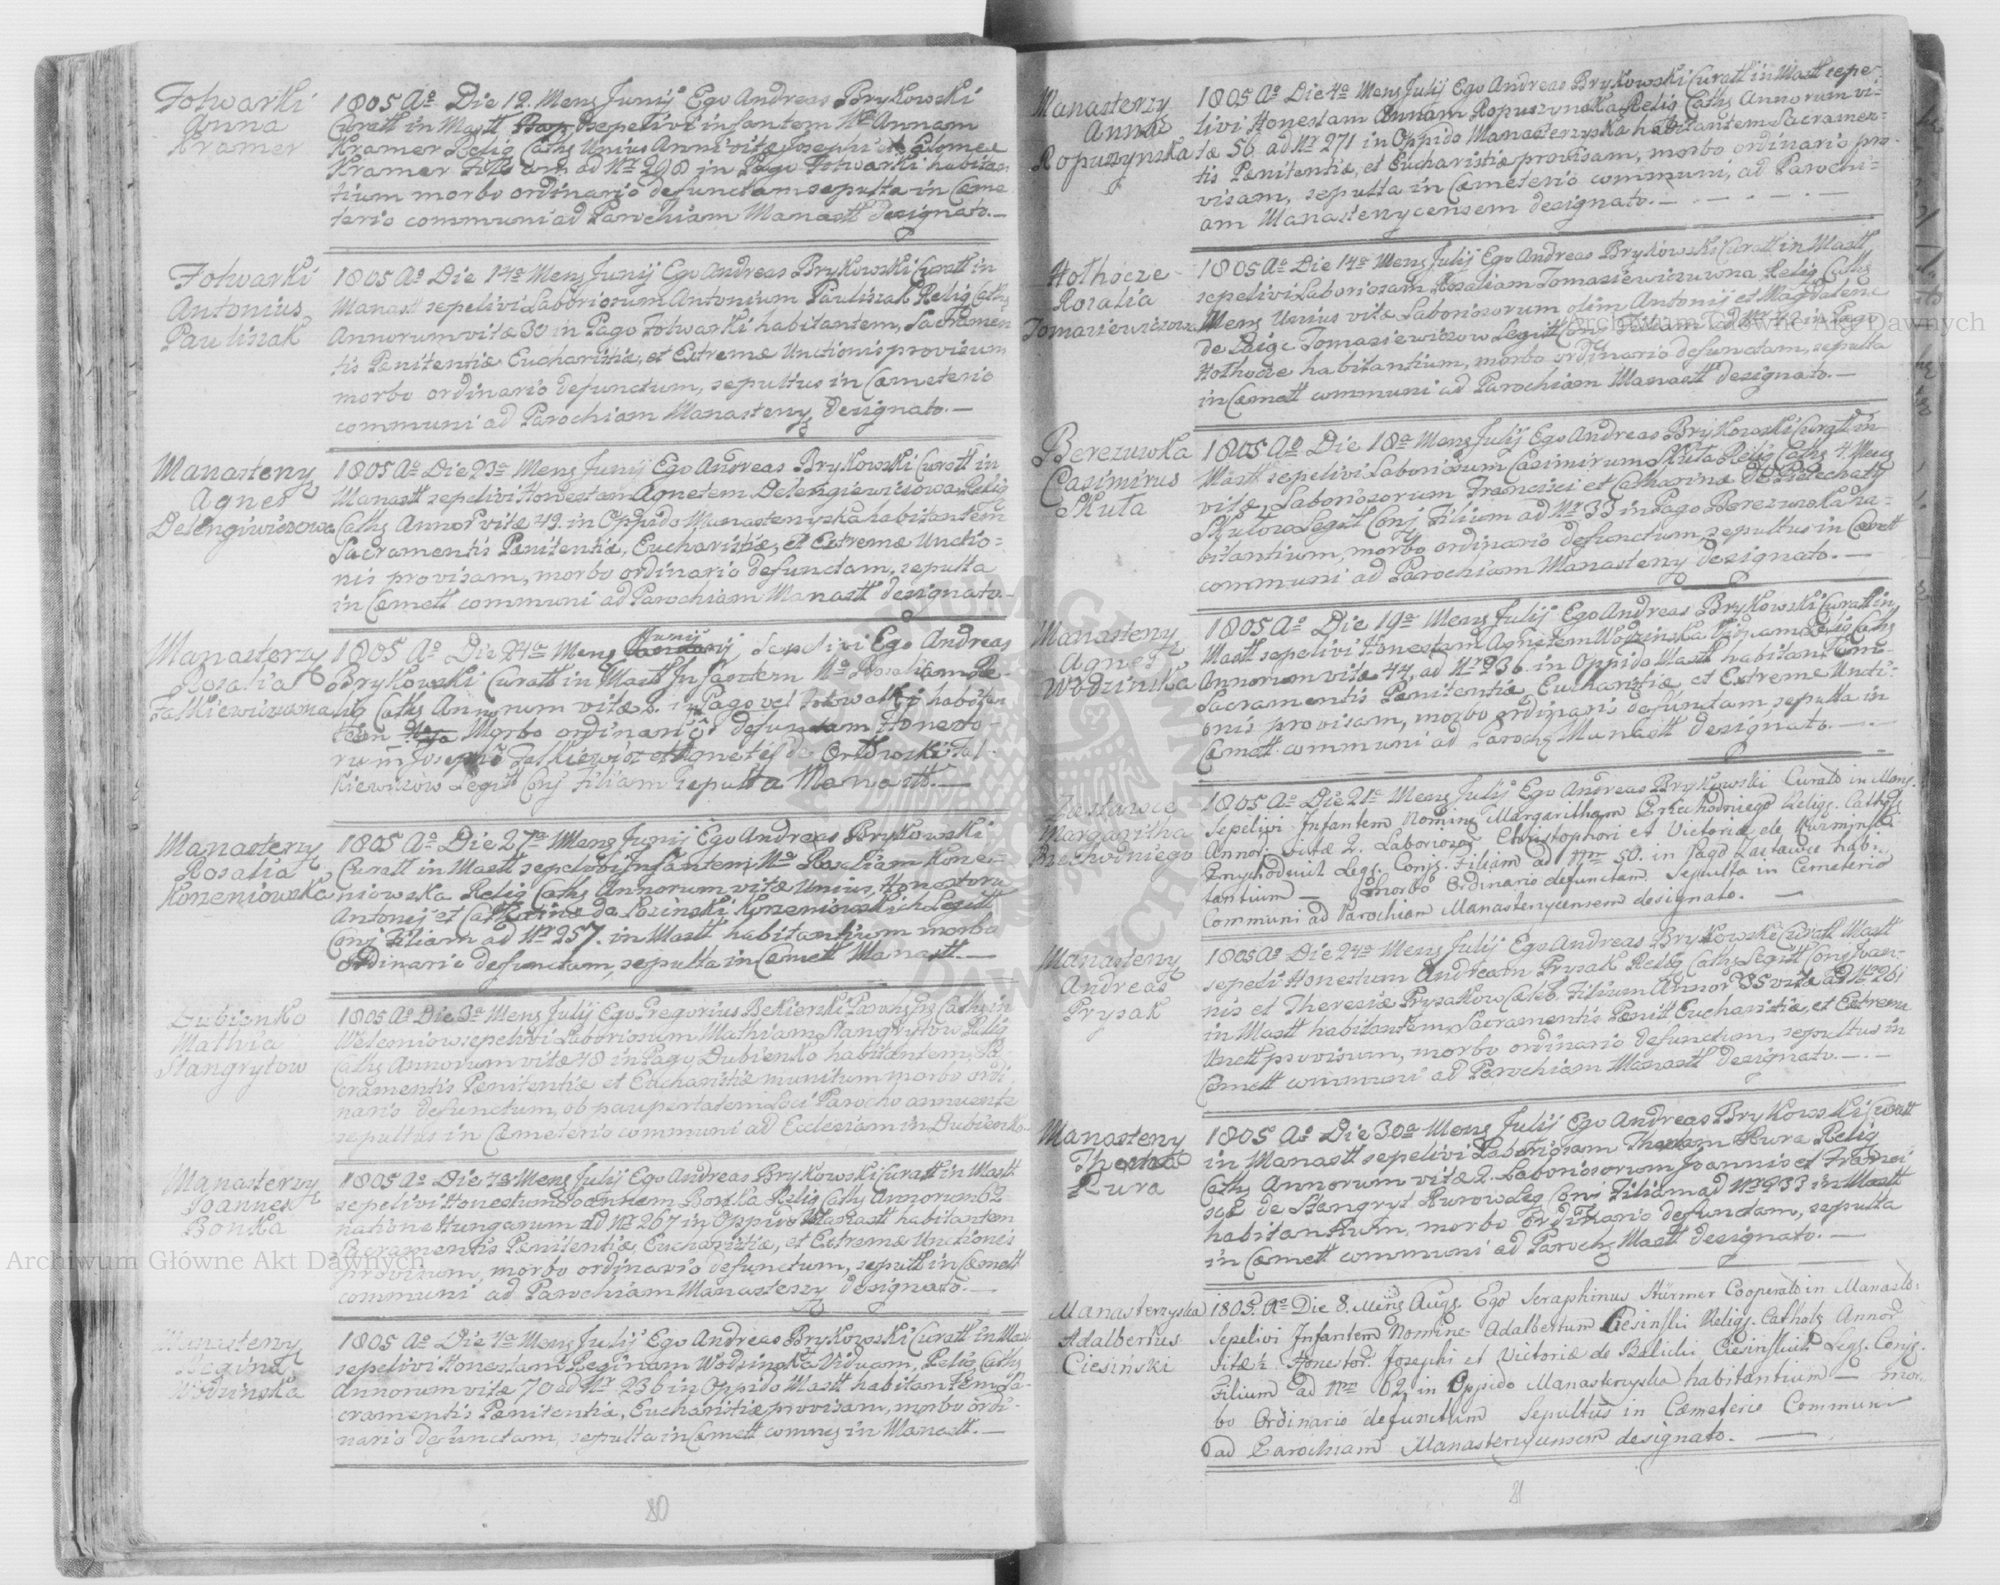 Fotwarki
Anna
Kramer
1805 Ao Die 12. Mens Junij Ego Andreas Brykowski
Curatt in Mastt sepelivi infantem No Annam
Kramer Relig Caths Unius Anni vitæ Josephi et
Kramer ad Nr 298 in Pago Fotwarki habitan
tium morbo ordinario defunctam sepulta in Cæme
terio communi ad Parochiam Manastt designato.—
Fotwarki
Antonius
Pauliszak
1805 Ao Die 14a Mens Junij Ego Andreas Brykowski Curatt in
Manast sepelivi Laboriosum Antonium Pauliszak Relig Caths
Annorum vitæ 30 in Pago Fotwarki habitantem, Sacramen
tis Pænitentiæ Eucharistiæ, et Extremæ Unctionis provisum
morbo ordinario defunctum, sepultus in Cæmeterio
communi ad Parochiam Manasterz designato.—
Manasterz
Agnes
Delengiewiczowa
1805 Ao Die 23a Mens Junij Ego Andreas Brykowski Curatt in
Manastt sepelivi Honestam Agnetem Delengiewiczowa Relig
Caths Annor vitæ 49. in Oppido Manasterzyska habitantem
Sacramentis Pænitentiæ, Eucharistiæ, et Extremæ Unctio=
nis provisam, morbo ordinario defunctam, sepulta
in Cæmett communi ad Parochiam Manastt designato.—
Manasterzy
Rosalia
Falkiewiczowna
1805 Ao Die 24a Mens Junij Sepelivi Ego Andreas
Brykowski Curatt in Mastt Infantem No Rosaliam Re
lig Caths Annorum vitæ 2. in Pago vel Fotwarki habitan
tem Morbo ordinario defunctam Honesto-
rum Josephi Falkiewicz et Agnetis de Ortowski Fal-
kiewiczow Legitt Conj Filiam Sepulta Manastt.—
Manasterz
Rosalia
Korzeniowska
1805 Ao Die 27a Mens Junij Ego Andreas Brykowski
Curatt in Mastt sepelivi Infantem No Rosaliam Korze=
niowska Relig Caths Annorum vitæ Unius, Honestoru
Antonij et Catharinæ de Kozinski Korzeniowskich Legitt
Conj Filiam ad Nr 257. in Mastt habitantium morbo
Ordinario defunctam, sepulta in Cæmett Manastt.—
Dubienko
Mathia
Stangrytow
1805 Ao Die 3a Mens Julij Ego Gregorius Bekierski Parochus Caths in
Welesniow sepelivi Laboriosum Mathiam Stangrytow Relig
Caths Annorum vitæ 48 in Pago Dubienko habitantem, Sa
cramentis Pænitentiæ et Eucharistiæ munitum morbo ordi
nario defunctum, ob paupertatem Loci Parocho annuente
sepultus in Cæmeterio communi ad Ecclesiam in Dubienko.
Manasterzy
Joannes
Bonka
1805 Ao Die 4a Mens Julij Ego Andreas Brykowski Curatt in Mastt
sepelivi Honestum Joannem Bonka Relig Caths Annorum 62
natione Hungarum ad Nr 267 in Oppido Manastt habitantem
Sacramentis Pænitentiæ, Eucharistiæ, et Extremæ Unctionis
provisum, morbo ordinario defunctum, sepultt in Cæmett
communi ad Parochiam Manasterzy designato.—
Manasterzy
Regina
Wodzinska
1805 Ao Die 4a Mens Julij Ego Andreas Brykowski Curatt in Mast
sepelivi Honestam Reginam Wodzinska Viduam, Relig Caths
Annorum vitæ 70 ad Nr 236 in Oppido Mastt habitantem, Sa-
cramentis Pænitentiæ, Eucharistiæ provisam, morbo ordi-
nario defunctam, sepulta in Cæmett commun in Manastt.—
80
Manasterzy
Anna
Ropuszynska
1805 Ao Die 4a Mens Julij Ego Andreas Brykowski Curatt in Mastt sepe-
livi Honestam Annam Ropuszynska Relig Caths Annorum vi-
tæ 56 ad Nr 271 in Oppido Manasterzyska habitantem Sacramen-
tis Pænitentiæ, et Eucharistiæ provisam, morbo ordinario pro-
visam, sepulta in Cæmeterio communi, ad Parochi-
am Manasterzycensem designato.—
Hothocze
Rosalia
Tomasiewiczowna
1805 Ao Die 14a Mens Julij Ego Andreas Brykowski Curatt in Mastt
sepelivi Laboriosam Rosaliam Tomasiewiczowna Relig Caths
Mens Unius vitæ Laboriosorum olim Antonij et Magdalenæ
de Tomasiewiczow Legitt Conj Filiam ad Nr 42 in Pago
Hothocze habitantium, morbo ordinario defunctam, sepulta
in Cæmett communi ad Parochiam Manastt designato.—
Berezuwka
Casimirus
Skuta
1805 Ao Die 18a Mens Julij Ego Andreas Brykowski Curatt in
Mastt sepelivi Laboriosum Casimirum Skuta Relig Caths 4. Mens
vitæ, Laboriosorum Francisci et Catharinæ de Pielechaty
Skutow Legitt Conj Filium ad Nr 33 in Pago Berezuwka ha-
bitantium, morbo ordinario defunctum, sepultus in Cæmett
communi ad Parochiam Manasterzy designato.—
Manasterzy
Agnes
Wodzinska
1805 Ao Die 19a Mens Julij Ego Andreas Brykowski Curatt in
Mastt sepelivi Honestam Agnetem Wodzinska Relig Caths
Annorum vitæ 44, ad Nr 236. in Oppido Mastt habitantem
Sacramentis Pænitentiæ, Eucharistiæ et Extremæ Uncti-
onis provisam, morbo ordinario defunctam sepulta in
Cæmett communi ad Paroch Manastt designato.—
Zastawce
Margaritha
Przchodniego
1805 Ao Die 21a Mens Julij Ego Andreas Brykowski Curato in Manj.
Sepelivi Infantem Nomine Margaritham Przchodniego Religs. Catholj
Annor: vitæ 2. Laborioso Christophori et Victoriæ de Kurminski
Przychodnich Legs. Conjs. Filiam ad Nr 50. in Pago Zastawce hab.
tantium — Morbo Ordinario defunctam. Sepulta in Cemeterio
Communi ad Parochiam Manasterzycensem designato. —
Manasterzy
Andreas
Prysak
1805 Ao Die 24a Mens Julij Ego Andreas Brykowski Curatt Mastt
sepeli Honestum Andream Prysak Relig Caths Legitt Conj Joan-
nis et Theresiæ Prysakow Cæleb. Filium Annor 35 vitæ ad Nr 261
in Mastt habitantem, Sacramentis Pænitt Eucharistiæ, et Extrema
Unctt provisum, morbo ordinario defunctum, sepultus in
Cæmett communi ad Parochiam Manastt designato.—
Manasterzy
Thecla
Kura
1805 Ao Die 30a Mens Julij Ego Andreas Brykowski Curatt
in Manastt sepelivi Laboriosam Theclam Kura Relig
Caths Annorum vitæ 2. Laboriosorum Joannis et Franci
scæ de Stangryt Kurow Leg Conj Filiam ad Nr 233 in Mastt
habitantium, morbo ordinario defunctam, sepulta
in Cæmett communi ad Paroch Mastt designato.—
Manasterzyska
Adalbertus
Ciesinski
1805. Ao Die 8. Mens Augs. Ego Seraphinus Stürmer Cooperato in Manasto:
Sepelivi Infantem Nomine Adalbertum Ciesinski Religs. Catholj Annor
Vitæ ½ Honestor. Josephi et Victoriæ de Balicki Ciesinskich Legs. Conjs.
Filium ad Nr 62 in Oppido Manasterzyska habitantium — mor-
bo Ordinario defunctum Sepultus in Cæmeterio Communi
ad Parochiam Manasterzycensem designato. —
81
Archiwum Główne Akt Dawnych
Archiwum Główne Akt Dawnych
ARCHIWUM GŁÓWNE AKT DAWNYCH